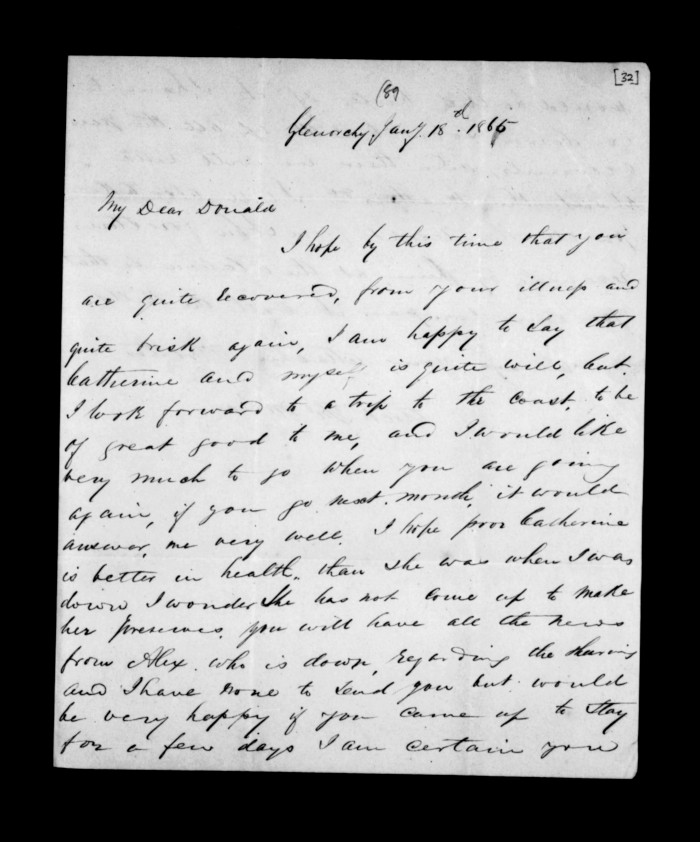 [32]
(89
Glenorchy, Jany. 18d. 1865
My Dear Donald
I hope by this time that you
are quite recovered, from your illness and
quite brisk again, I am happy to say that
Catherine and myself is quite well, but
I look forward to a trip to the coast, to be
of great good to me, and I would like
very much to go when you are going
again, if you go next month, it would
answer, me very well. I hope poor Catherine
is better in health, than she was when I was
down I wonder She has not come up to make
her Preserves, you will have all the news
from Alex. who is down, regarding the Shearing
and I have none to send you but would
be very happy if you came up to stay
for a few days I am certain you